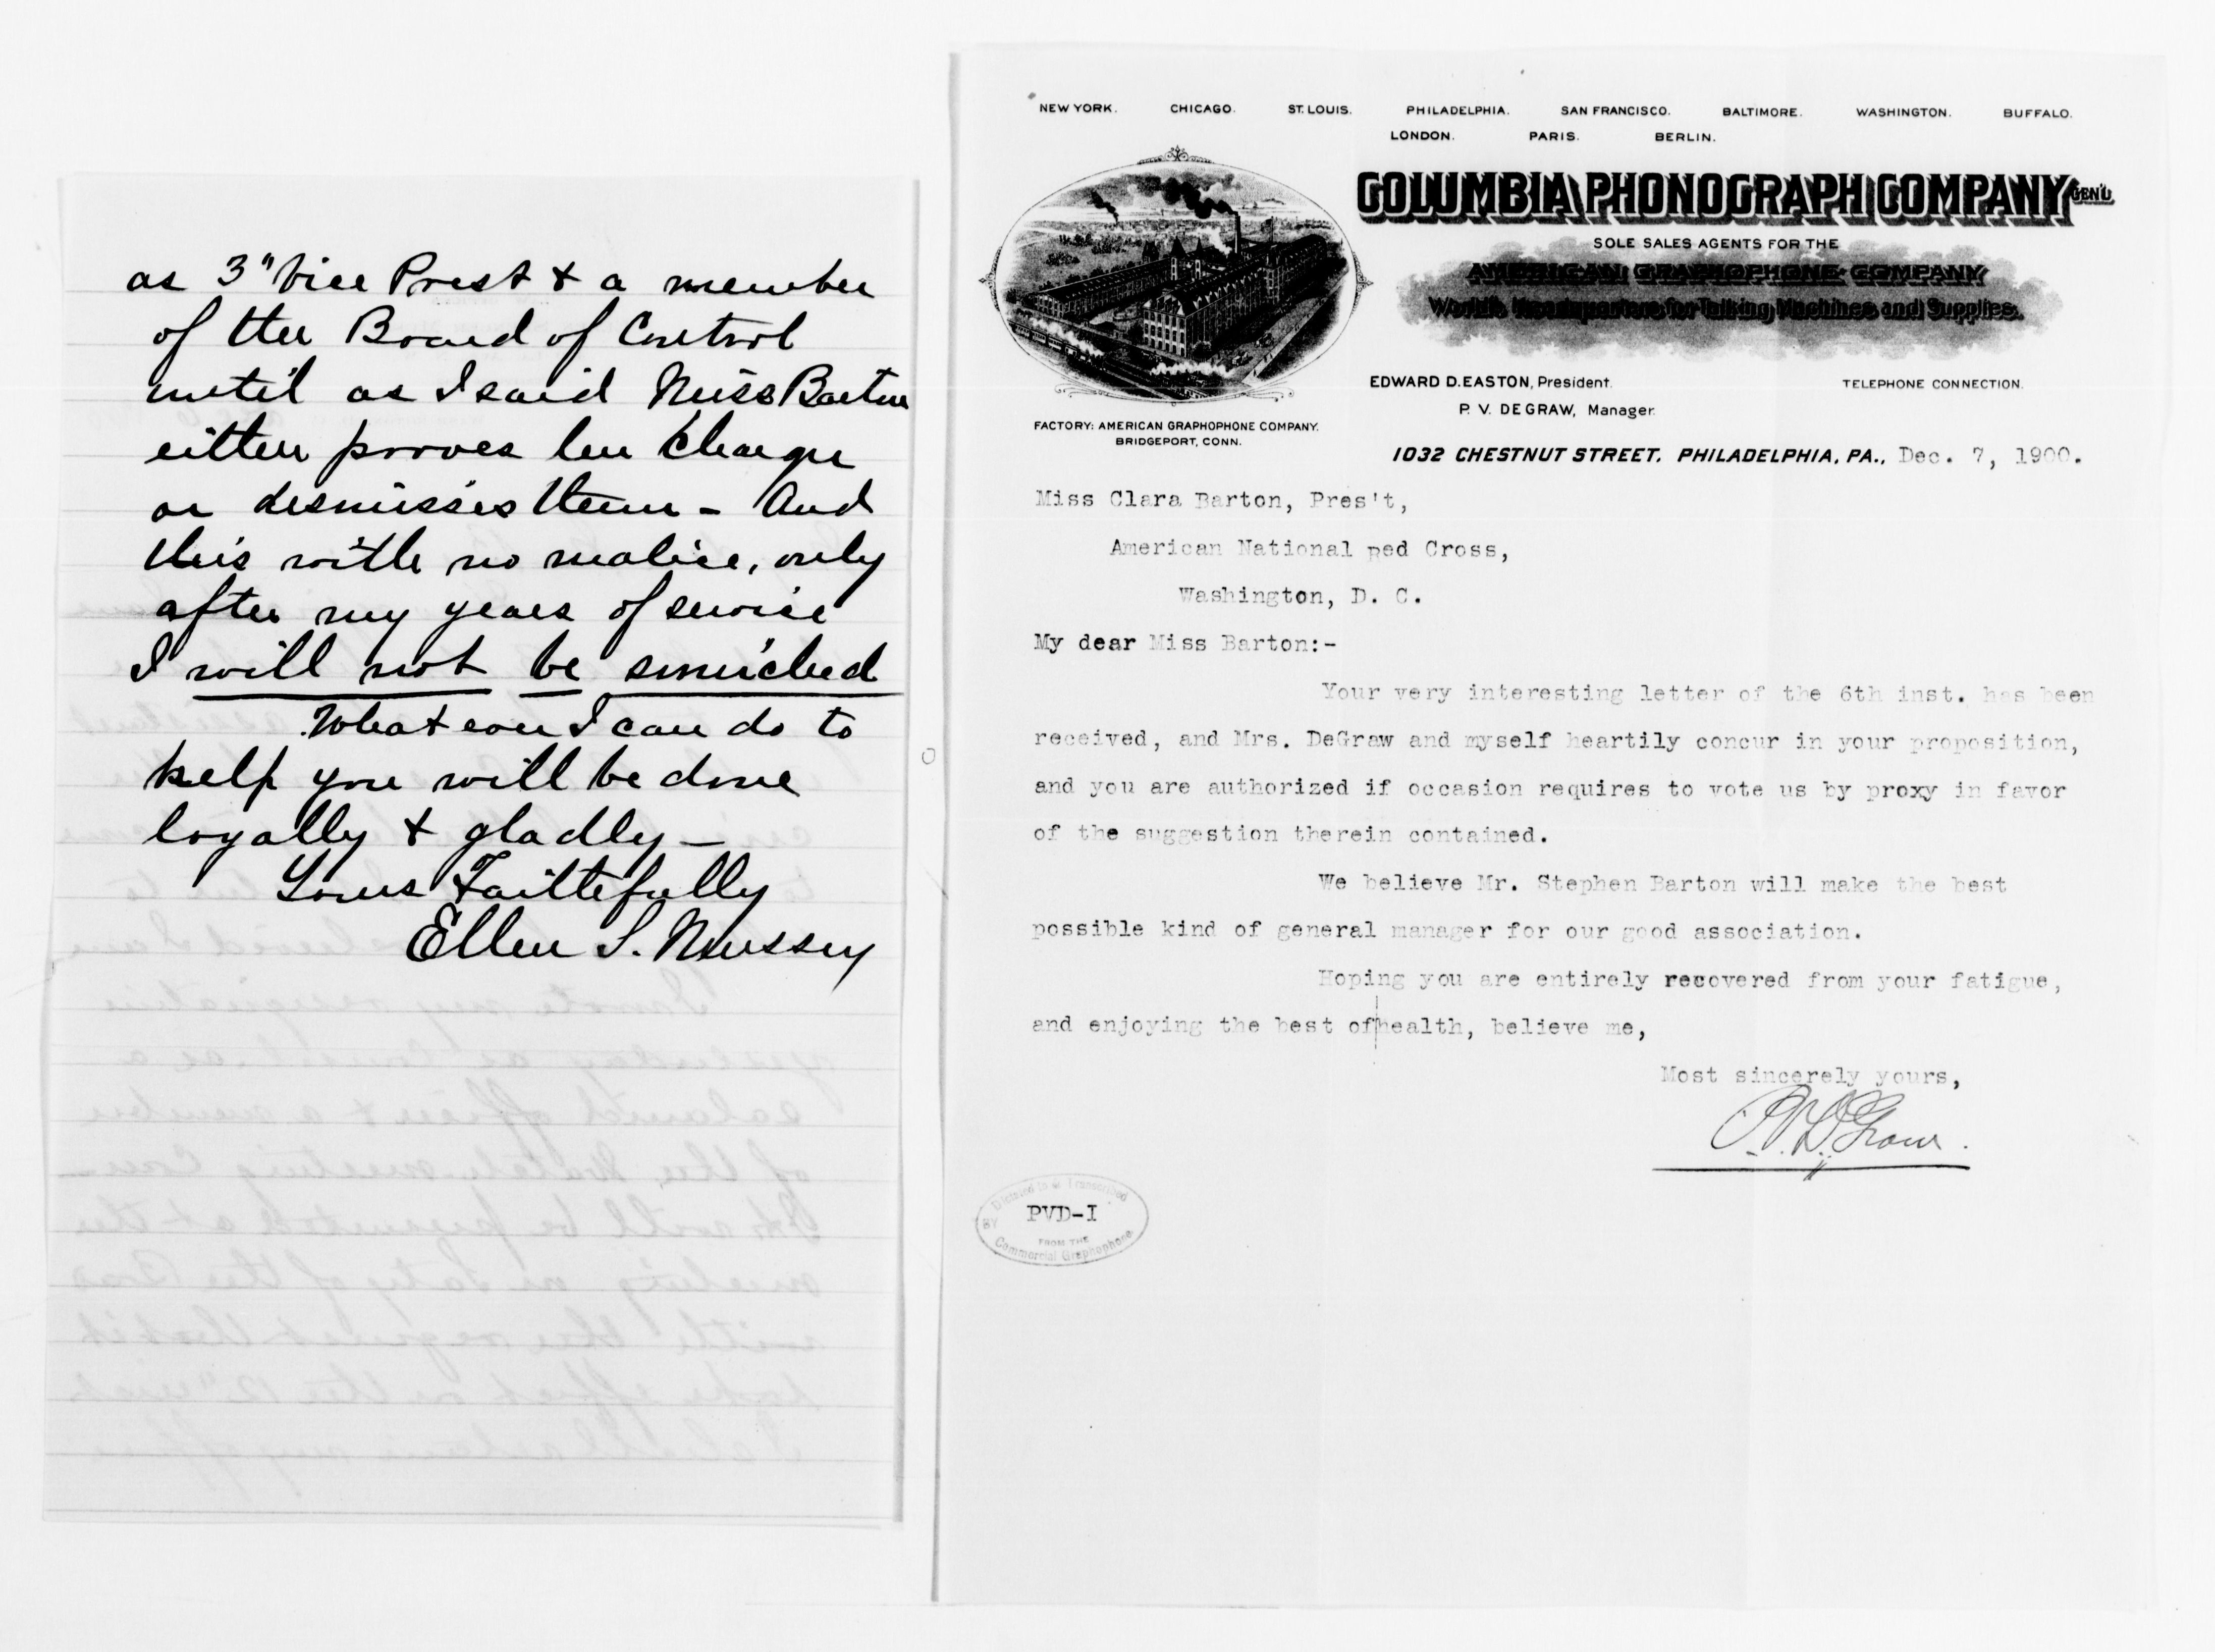 as 3" Vice Prest & a member
of the Board of Control
until as I said Miss Barton
either proves her charge
or dismisses them - And
this with no malice, only
after my years of service
I will not be smirched
Whatever I can do to
help you will be done
loyally & gladly -
Yours Faithfully
Ellen S. Mussey
NEW YORK. CHICAGO. ST. LOUIS. PHILADELPHIA. SAN FRANCISCO. BALTIMORE. WASHINGTON. BUFFALO.
LONDON. PARIS. BERLIN.
COLUMBIA PHONOGRAPH COMPANY GEN'L
SOLE SALES AGENTS FOR THE
AMERICAN GRAPHOPHONE COMPANY
World's Headquarters for Talking Machines and Supplies.
EDWARD D. EASTON, President. TELEPHONE CONNECTION.
P. V. DEGRAW, Manager.
FACTORY: AMERICAN GRAPHOPHONE COMPANY.
BRIDGEPORT, CONN.
1032 CHESTNUT STREET. PHILADELPHIA, PA., Dec. 7, 1900.
Miss Clara Barton, Pres't,
American National Red Cross,
Washington, D. C.
My dear Miss Barton:-
Your very interesting letter of the 6th inst. has been
received, and Mrs. DeGraw and myself heartily concur in your proposition,
and you are authorized if occasion requires to vote us by proxy in favor
of the suggestion therein contained.
We believe Mr. Stephen Barton will make the best
possible kind of general manager for our good association.
Hoping you are entirely recovered from your fatigue,
and enjoying the best of health, believe me,
Most sincerely yours,
P. V. DeGraw.
Dictated to & Transcribed
BY PVD-I
FROM THE
Commercial Graphophone